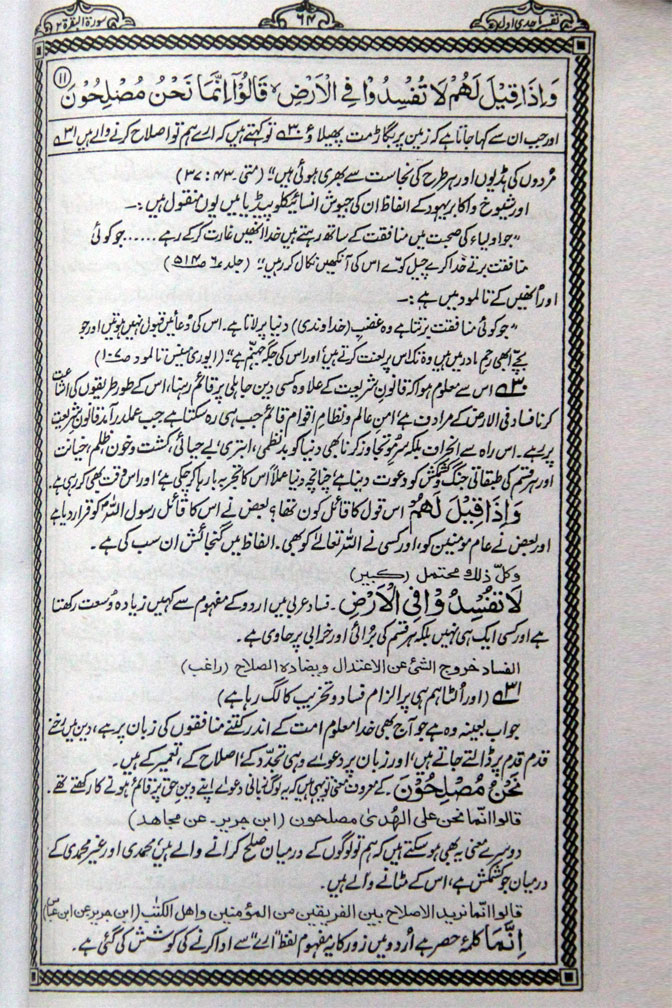 تفسیر ماجدی اول
۶۴
سورۃ البقرۃ ۲
وَاِذَا قِیْلَ لَهُمْ لَا تُفْسِدُوْا فِی الْاَرْضِ قَالُوْٓا اِنَّمَا نَحْنُ مُصْلِحُوْنَ ⑪
اور جب ان سے کہا جاتا ہے کہ زمین پر بگاڑ مت پھیلاؤ ۳۰؎ تو کہتے ہیں کہ ارے ہم تو اصلاح کرنے والے ہیں ۳۱؎
مُردوں کی ہڈیوں اور ہر طرح کی نجاست سے بھری ہوئی ہیں" (متی۔ ۲۳: ۲۷)
اور شیوخ و اکابر یہود کے الفاظ ان کی جیوش انسائیکلوپیڈیا میں یوں منقول ہیں:۔
"جو اولیاء کی صحبت میں منافقت کے ساتھ رہتے ہیں خدا انھیں غارت کرکے رہے ..... جو کوئی
منافقت برتے خدا کرے جیل کوّے اس کی آنکھیں نکال کر رہیں" (جلد ۶ ص۵۱۴)
اور انھیں کے تالمود میں ہے:۔
"جو کوئی منافقت برتتا ہے وہ غضب (خداوندی) دنیا پر لاتا ہے۔ اس کی دعائیں قبول نہیں ہوتیں اور جو
بچّے ابھی رحم مادر میں ہیں وہ تک اس پر لعنت کرتے ہیں اور اس کی جگہ جہنم ہے" (ایوری مینس تالمود ص۱۰۷)
۳۰؎ اس سے معلوم ہوا کہ قانون شریعت کے علاوہ کسی دین جاہلی پر قائم رہنا، اس کے طور طریقوں کی اشاعت
کرنا فساد فی الارض کے مرادف ہے، امن عالم و نظام اقوام قائم جب ہی رہ سکتا ہے جب عملدرآمد قانون شریعت
پر رہے۔ اس راہ سے انحراف بلکہ سرِمو تجاوز کرنا بھی دنیا کو بدنظمی، ابتری، بے حیائی، کشت و خون، ظلم، خیانت
اور ہر قسم کی طبقاتی جنگ و کشمکش کو دعوت دینا ہے، چنانچہ دنیا عملاً اس کا تجربہ بارہا کر چکی ہے اور اس وقت بھی کر رہی ہے۔
وَاِذَا قِیْلَ لَهُمْ اس قول کا قائل کون تھا؟ بعض نے اس کا قائل رسول اللہؐ کو قرار دیا ہے
اور بعض نے عام مؤمنین کو، اور کسی نے اللہ تعالےٰ کو بھی۔ الفاظ میں گنجائش ان سب کی ہے۔
وكلّ ذلك محتمل (کبیر)
لَا تُفْسِدُوْا فِی الْاَرْضِ۔ فساد عربی میں اردو کے مفہوم سے کہیں زیادہ وُسعت رکھتا
ہے اور کسی ایک ہی نہیں بلکہ ہر قسم کی بُرائی اور خرابی پر حاوی ہے۔
الفساد خروج الشئ عن الاعتدال ویضادہ الصلاح (راغب)
۳۱؎ (اور الٹا ہم ہی پر الزام فساد و تخریب کا لگ رہا ہے)
جواب بعینہ وہ ہے جو آج بھی خدا معلوم امت کے اندر کتنے منافقوں کی زبان پر ہے، دین میں رخنے
قدم قدم پر ڈالتے جاتے ہیں، اور زبان پر دعوے وہی تجدّد کے، اصلاح کے، تعمیر کے ہیں۔
نَحْنُ مُصْلِحُوْنَ۔ کے معروف معنی تو یہی ہیں کہ یہ لوگ زبانی دعوے اپنے دین حق پر قائم ہونے کا رکھتے تھے۔
قالوا انّما نحن علی الهُدیٰ مصلحون (ابن جریر۔ عن مجاهد)
دوسرے معنی یہ بھی ہو سکتے ہیں کہ ہم تو لوگوں کے درمیان صلح کرانے والے ہیں، محمدی اور غیر محمدی کے
درمیان جو کشمکش ہے، اس کے مٹانے والے ہیں۔
قالوا انّما نرید الاصلاح بین الفریقین من المؤمنین واهل الکتٰب (ابن جریر عن ابن عباسؓ)
اِنَّمَا کلمۂ حصر ہے اُردو میں زور کا یہ مفہوم لفظ "ارے" سے ادا کرنے کی کوشش کی گئی ہے۔